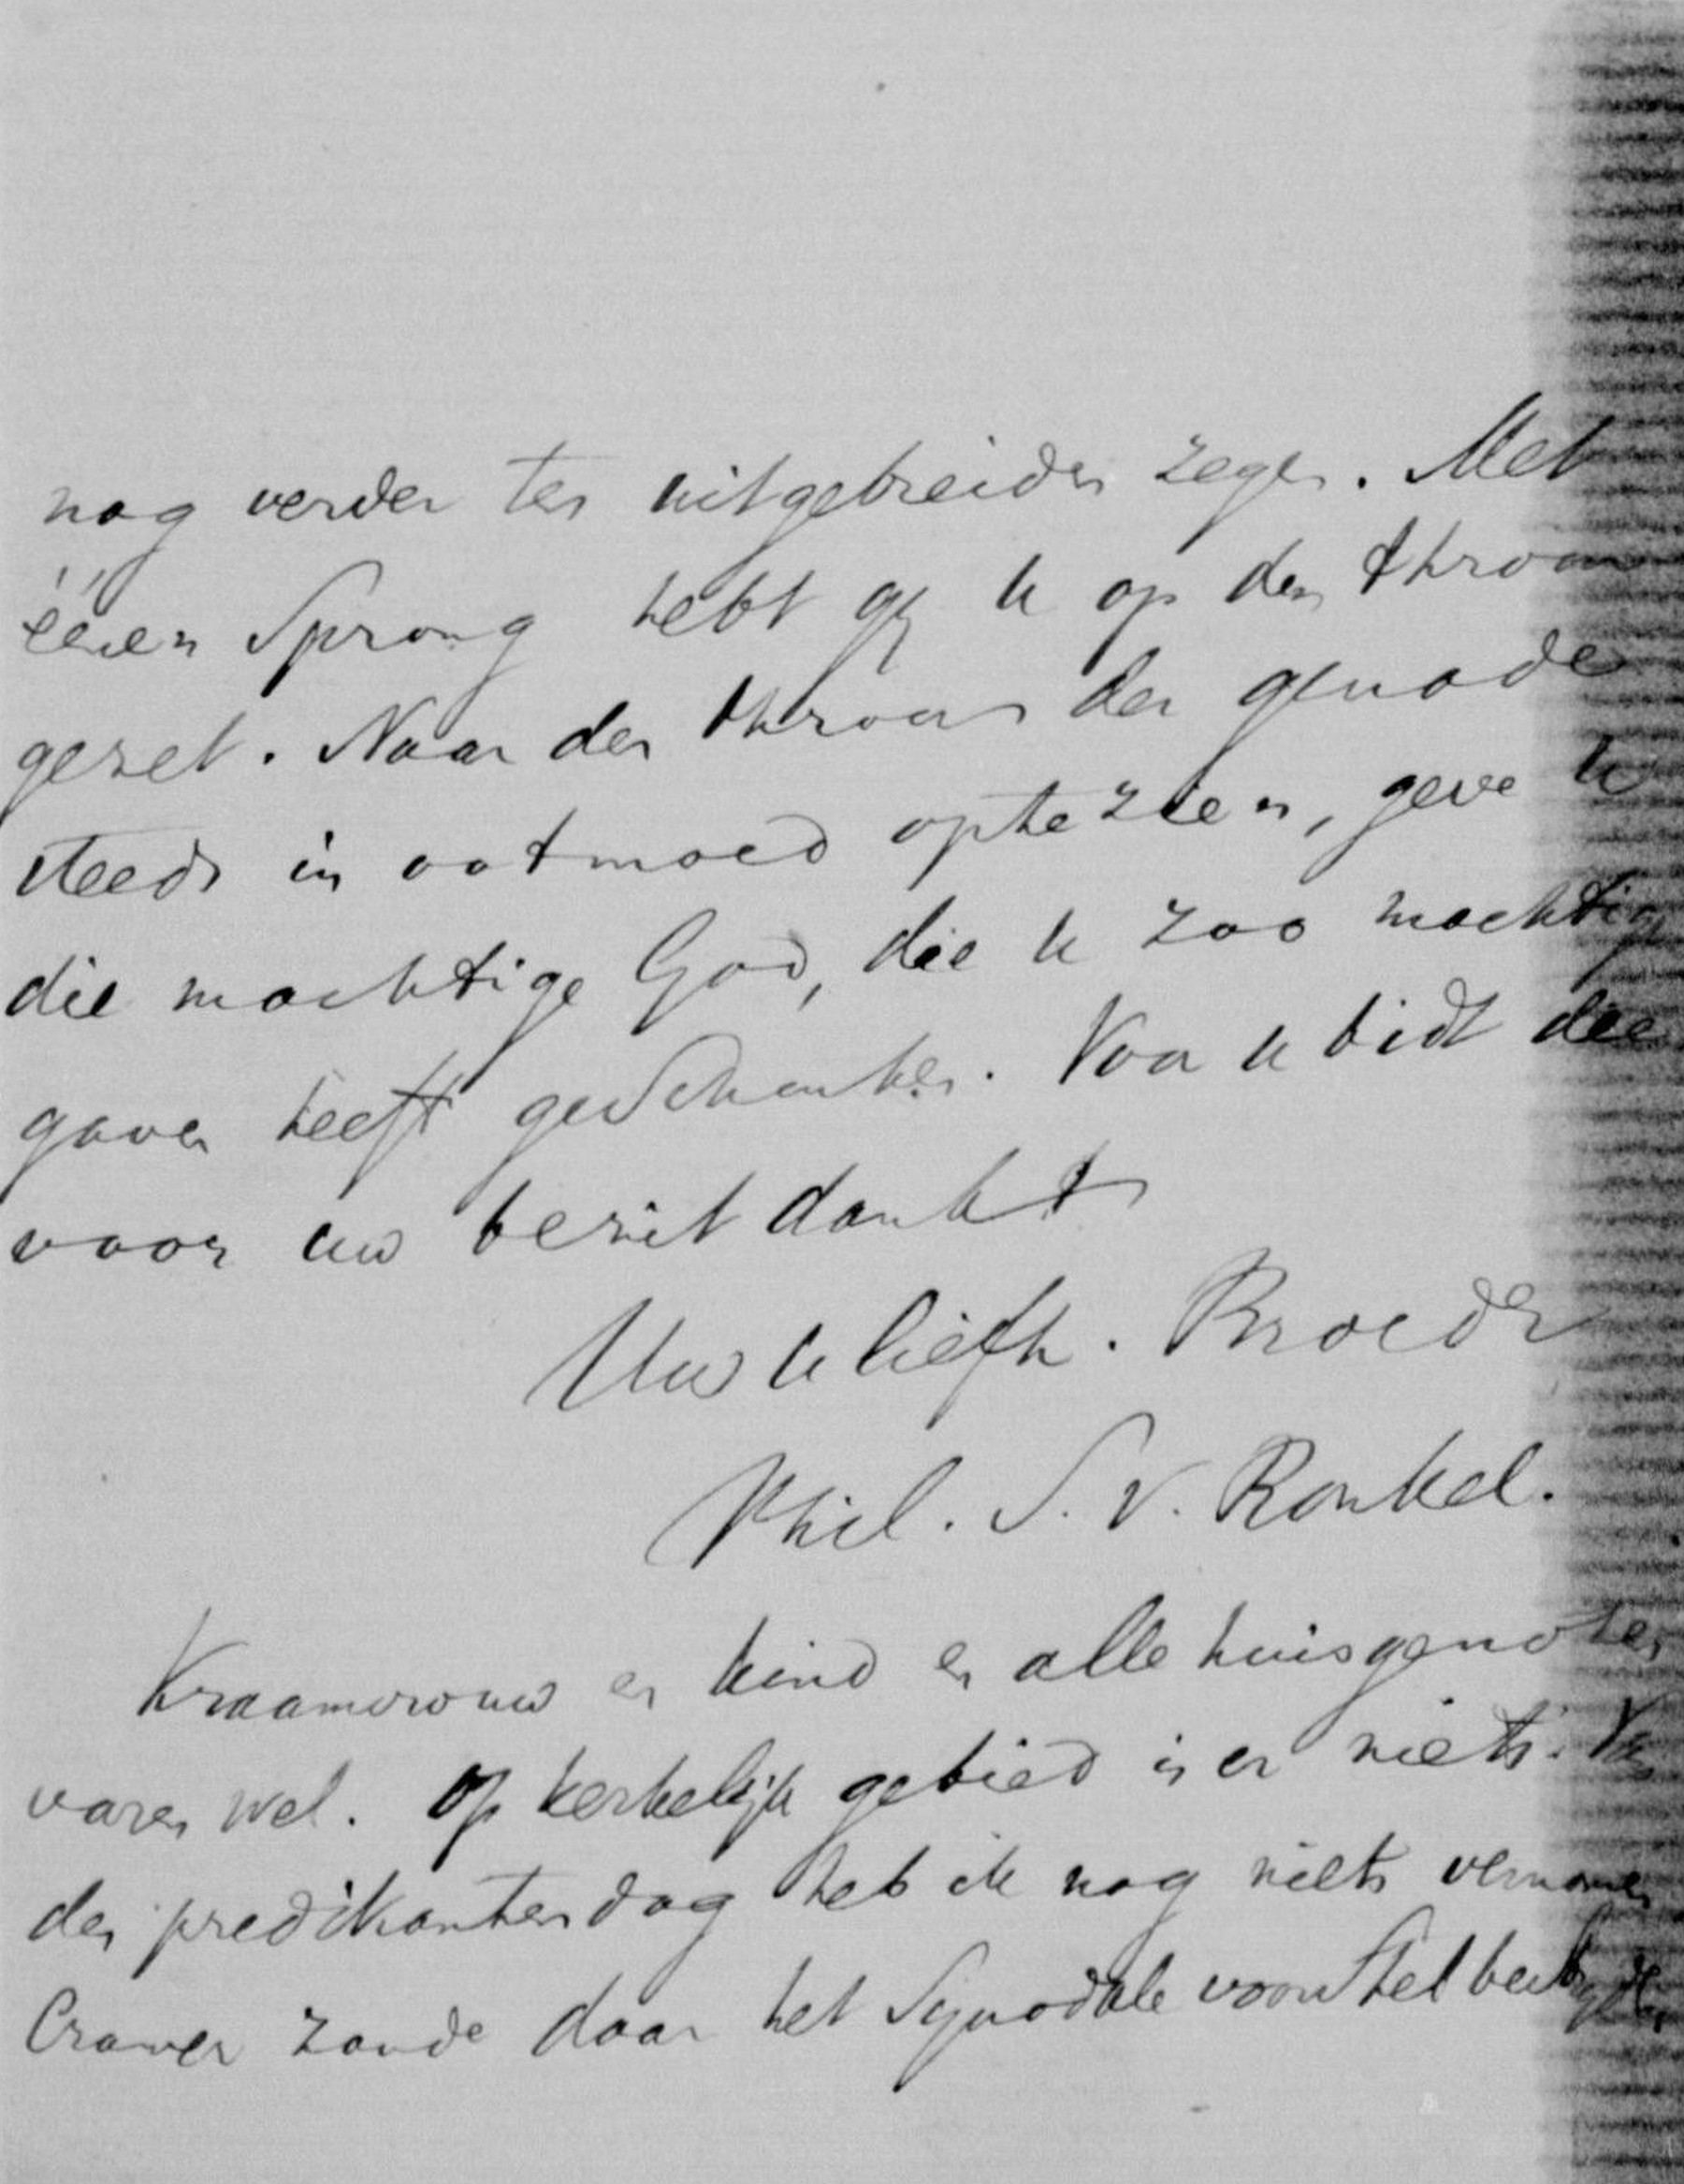 nog verder ten uitgebreiden zegen. Met
éénen Sprong hebt gij u op den throon
gezet. Naar den throon der genade
steeds in ootmoed optezien, geve u
die machtige God, die u zoo machtig
gaven heeft geschonken. Voor u bidt die
voor uw bezit dankt
Uw u liefh. Broeder
Phil. S. v. Ronkel.
Kraamvrouw en kind en alle huisgenoten
varen wel. Op kerkelijk gebied is er niets. Van
den predikantendag heb ik nog niets vernomen
Cramer zoude daar het Synodale voorstel